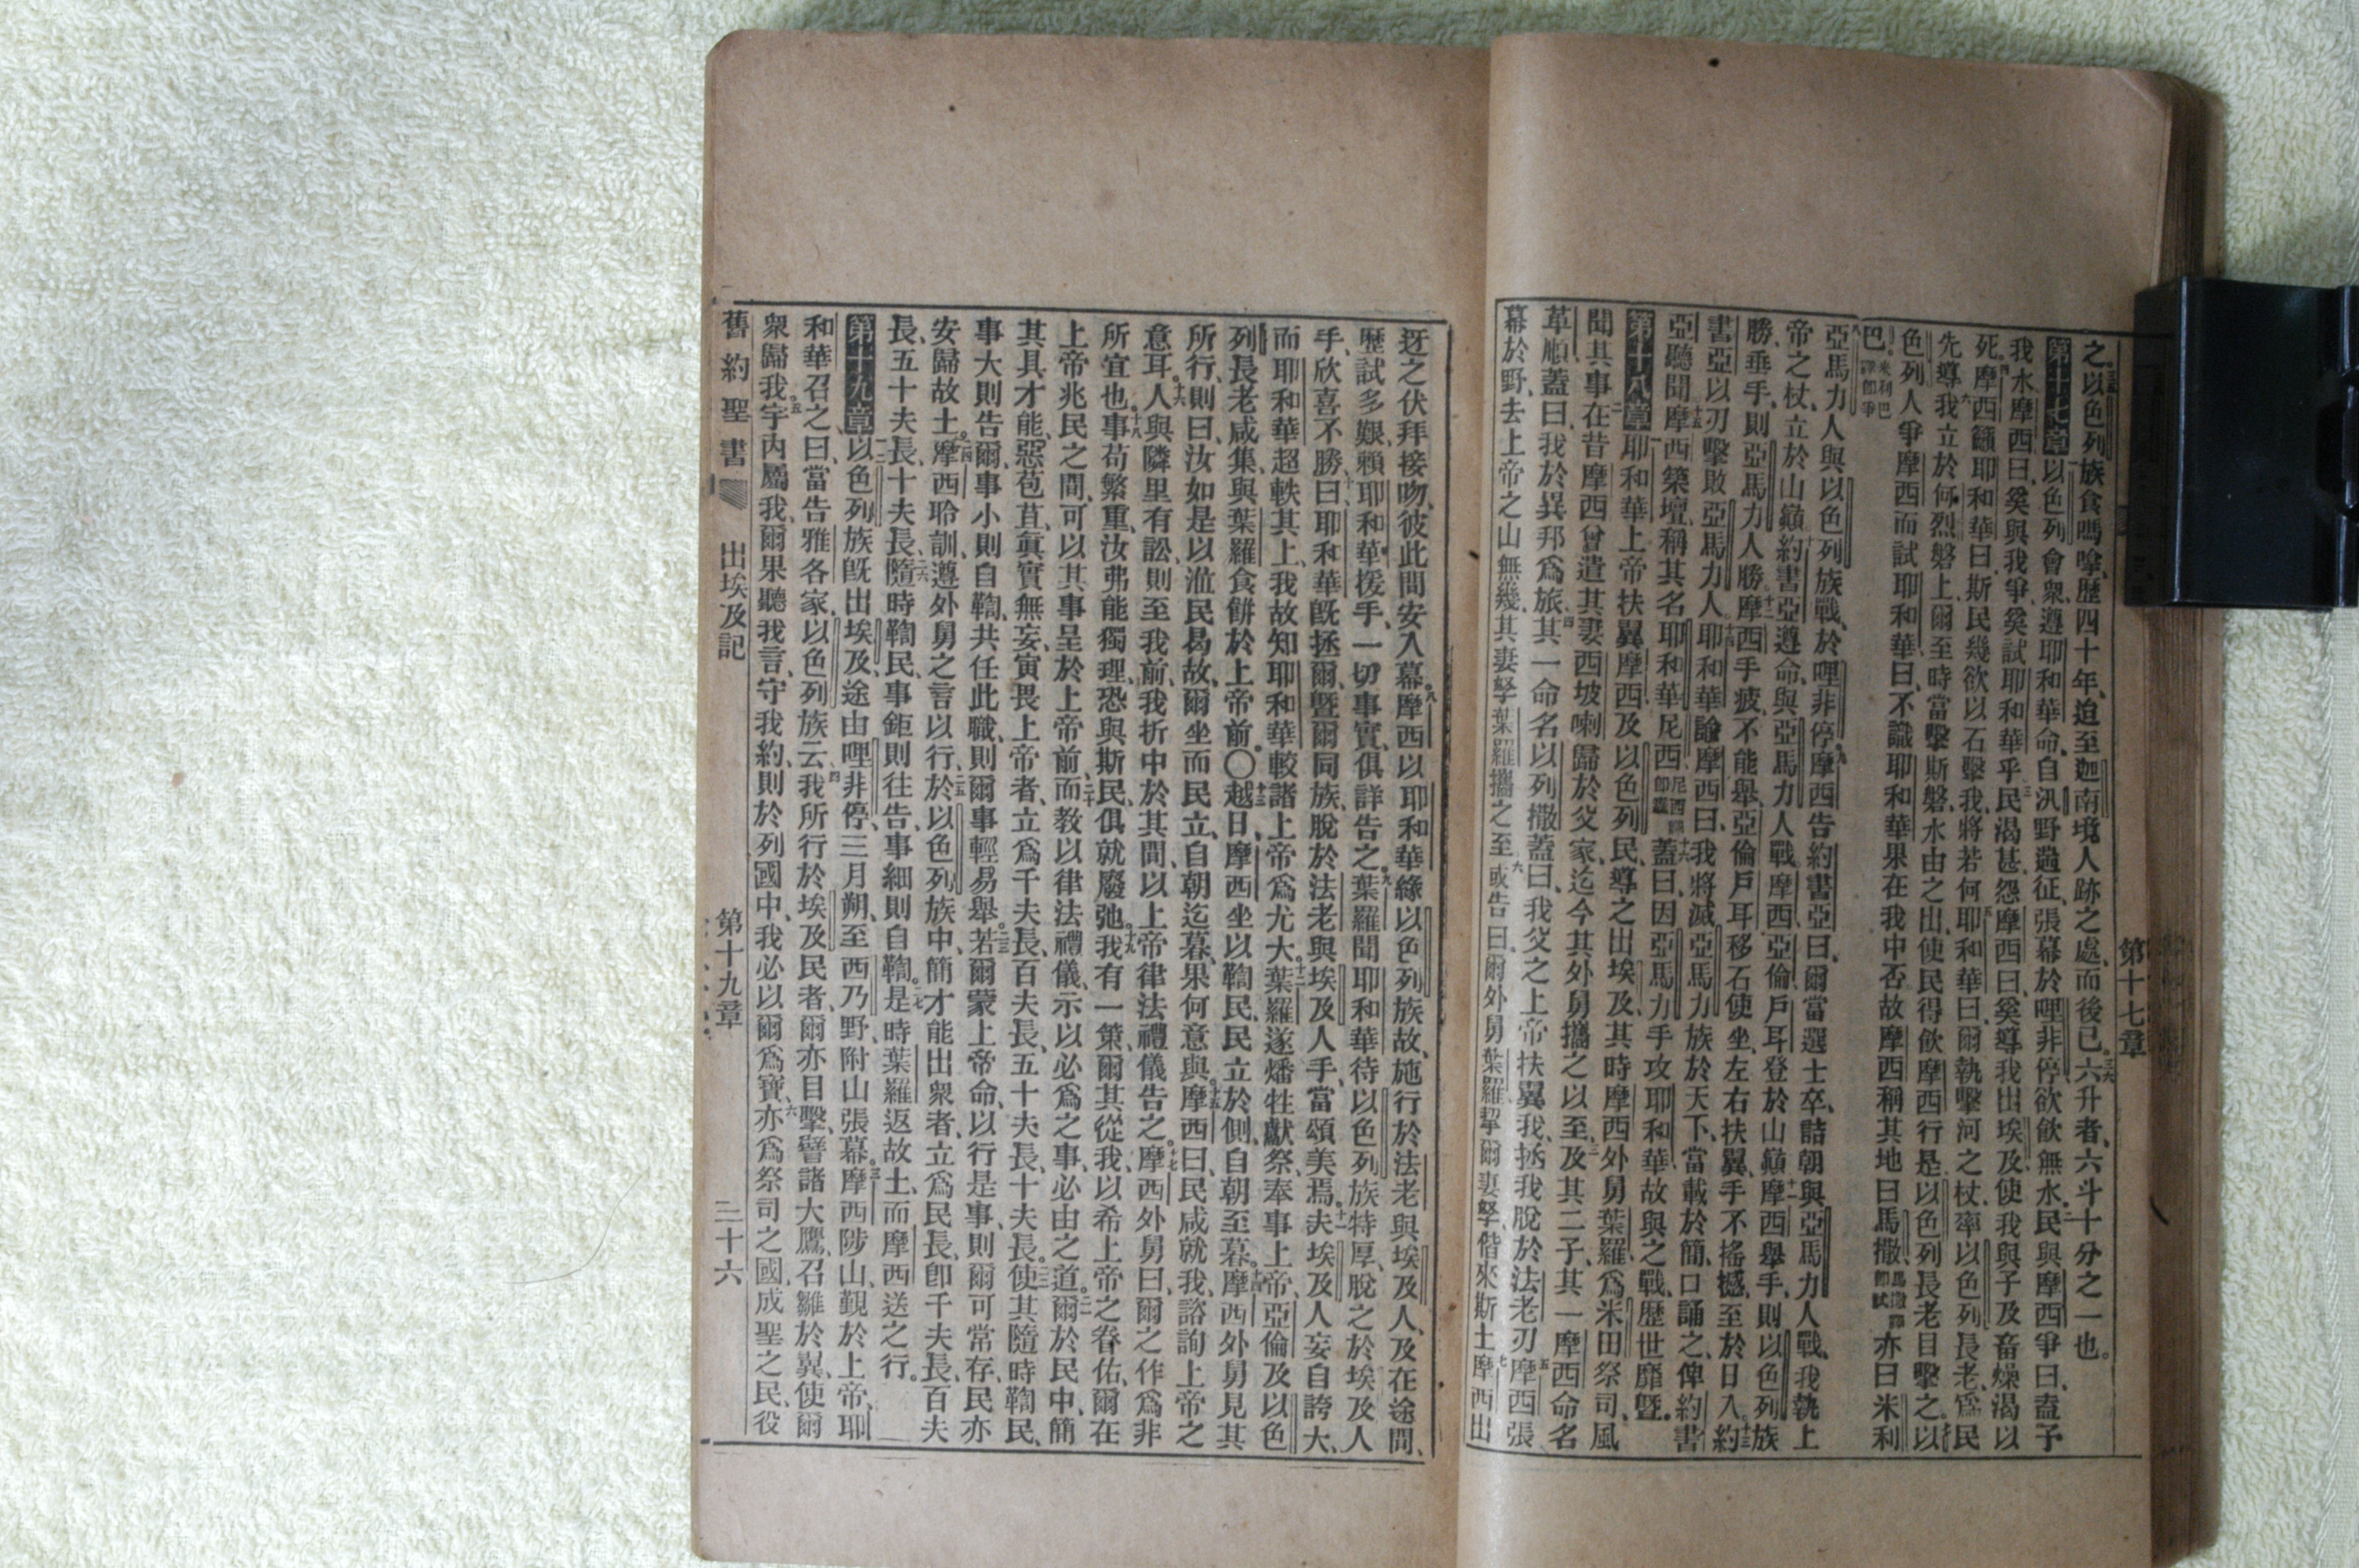 第十七章
之以色列族食嗎嗱歷四十年迨至迦南境人跡之處而後已六升者六斗十分之一也
第十七章以色列會衆遵耶和華命自汛野過征張幕於哩非停欲飲無水民與摩西爭曰盍予
我水摩西曰奚與我爭奚試耶和華乎民渴甚怨摩西曰奚導我出埃及使我與子及畜燥渴以
死摩西籲耶和華曰斯民幾欲以石擊我將若何耶和華曰爾執擊河之杖率以色列長老爲民
先導我立於何烈磐上爾至時當擊斯磐水由之出使民得飲摩西行是以色列長老目擊之以
色列人爭摩西而試耶和華曰不識耶和華果在我中否故摩西稱其地曰馬撒馬撒譯即試亦曰米利
巴米利巴譯即爭
亞馬力人與以色列族戰於哩非停摩西告約書亞曰爾當選士卒詰朝與亞馬力人戰我執上
帝之杖立於山巔約書亞遵命與亞馬力人戰摩西亞倫戶耳登於山巔摩西舉手則以色列族
勝垂手則亞馬力人勝摩西手疲不能舉亞倫戶耳移石使坐左右扶翼手不搖撼至於日入約
書亞以刃擊敗亞馬力人耶和華諭摩西曰我將滅亞馬力族於天下當載於簡口誦之俾約書
亞聽聞摩西築壇稱其名耶和華尼西尼西譯即纛蓋曰因亞馬力手攻耶和華故與之戰歷世靡曁
第十八章耶和華上帝扶翼摩西及以色列民導之出埃及其時摩西外舅葉羅爲米田祭司風
聞其事在昔摩西曾遣其妻西坡喇歸於父家迄今其外舅攜之以至及其二子其一摩西命名
革順蓋曰我於異邦爲旅其一命名以列撒蓋曰我父之上帝扶翼我拯我脫於法老刃摩西張
幕於野去上帝之山無幾其妻孥葉羅攜之至或告曰爾外舅葉羅挈爾妻孥偕來斯土摩西出
迓之伏拜接吻彼此問安入幕摩西以耶和華緣以色列族故施行於法老與埃及人及在途間
歷試多艱賴耶和華援手一切事實俱詳告之葉羅聞耶和華待以色列族特厚脫之於埃及人
手欣喜不勝曰耶和華旣拯爾曁爾同族脫於法老與埃及人手當頌美焉夫埃及人妄自誇大
而耶和華超軼其上我故知耶和華較諸上帝爲尤大葉羅遂燔牲獻祭奉事上帝亞倫及以色
列長老咸集與葉羅食餅於上帝前〇越日摩西坐以鞫民民立於側自朝至暮摩西外舅見其
所行則曰汝如是以涖民曷故爾坐而民立自朝迄暮果何意與摩西曰民咸就我諮詢上帝之
意耳人與隣里有訟則至我前我折中於其間以上帝律法禮儀告之摩西外舅曰爾之作爲非
所宜也事苟繁重汝弗能獨理恐與斯民俱就廢弛我有一策爾其從我以希上帝之眷佑爾在
上帝兆民之間可以其事呈於上帝前而教以律法禮儀示以必爲之事必由之道爾於民中簡
其具才能惡苞苴眞實無妄寅畏上帝者立爲千夫長百夫長五十夫長十夫長使其隨時鞫民
事大則告爾事小則自鞫共任此職則爾事輕易舉若爾蒙上帝命以行是事則爾可常存民亦
安歸故土摩西聆訓遵外舅之言以行於以色列族中簡才能出衆者立爲民長卽千夫長百夫
長五十夫長十夫長隨時鞫民事鉅則往告事細則自鞫是時葉羅返故土而摩西送之行
第十九章以色列族旣出埃及途由哩非停三月朔至西乃野附山張幕摩西陟山覲於上帝耶
和華召之曰當告雅各家以色列族云我所行於埃及民者爾亦目擊譬諸大鷹召雛於翼使爾
衆歸我宇內屬我爾果聽我言守我約則於列國中我必以爾爲寶亦爲祭司之國成聖之民役
舊約聖書 出埃及記 第十九章 三十六